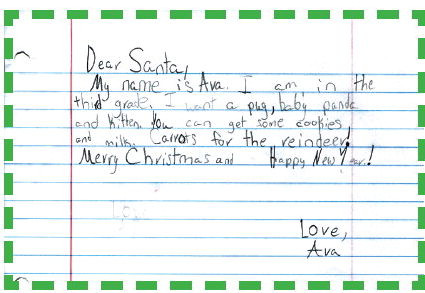 Dear Santa,
My name is Ava. I am in the
third grade. I want a pug, baby panda
and kitten. You can get some cookies
and milk. Carrots for the reindeer!
Merry Christmas and Happy New Year!
Love,
Ava